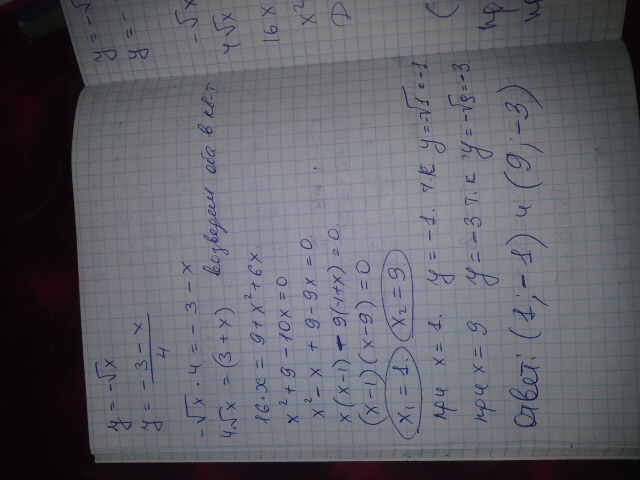 y = -√x
y = (-3-x)/4
-√x · 4 = -3-x
4√x = (3+x) возведем оба в кв-т
16·x = 9+x²+6x.
x²+9-10x=0
x²-x+9-9x=0.
x(x-1)-9(-1+x)=0.
(x-1)(x-9)=0
x₁=1. x₂=9.
при x=1. y=-1. т.к y=-√1=-1.
при x=9 y=-3 т.к y=-√9=-3.
Ответ: (1;-1) и (9;-3)
y = -√
y = -
-√x
4√x
16x
x²